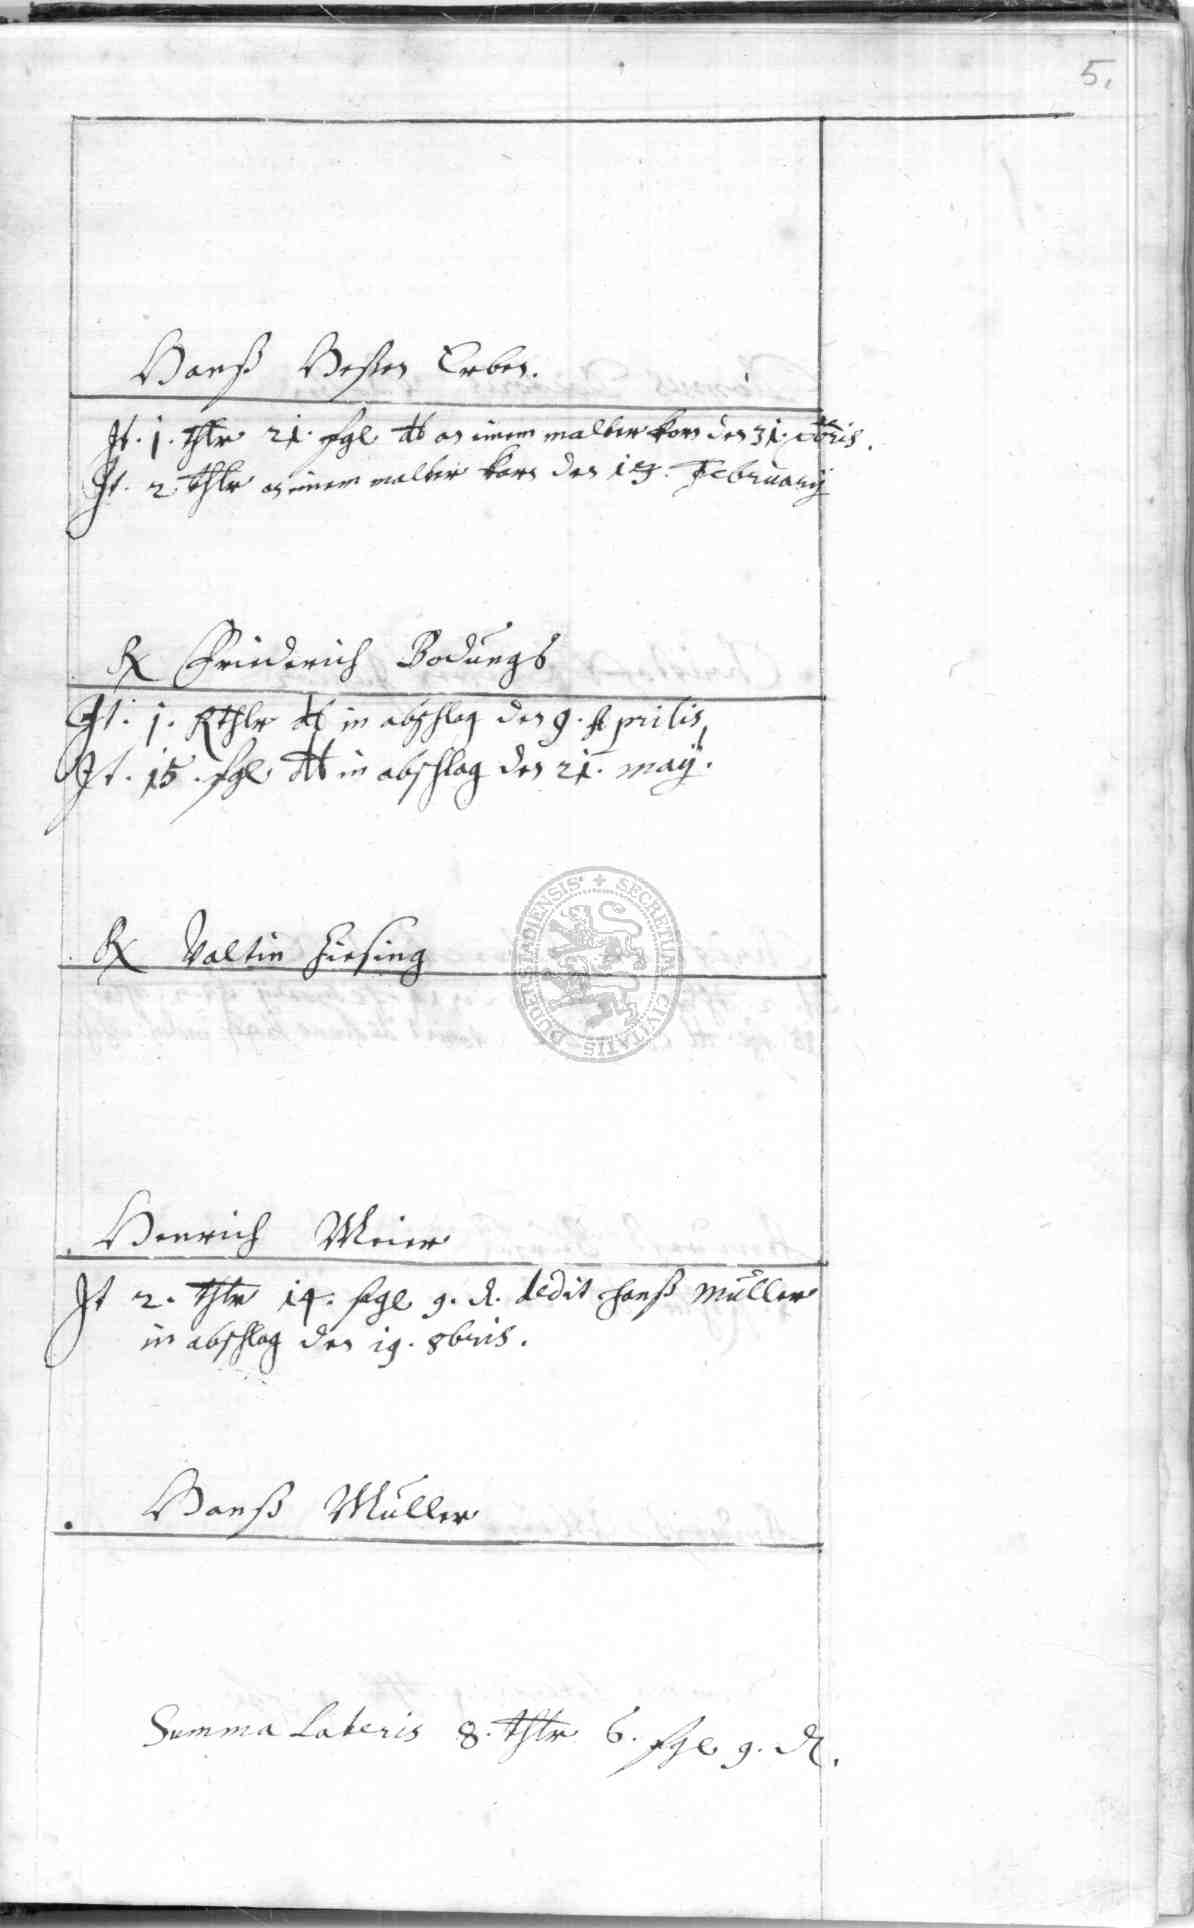 5.
Hanß Besten Erben.
It. 1. thlr 21. sgl dt an einem malter korn den 31. xbris.
It. 2 thlr an einem malter korn den 19. February
Friederich Bodungs
It. 1. Rthlr dt in abschlag den 9. Aprilis
It. 15. sgl dt in abschlag den 21. may.
Valtin Hiesing
SECRETUM CIVITATIS DUDERSTADIENSIS
Henrich Meier
It 2. thlr 14. sgl 9. d. dedit Hanß Müller
in abschlag den 19. 8bris.
Hanß Müller
Summa Lateris 8. thlr 6. sgl 9. d.